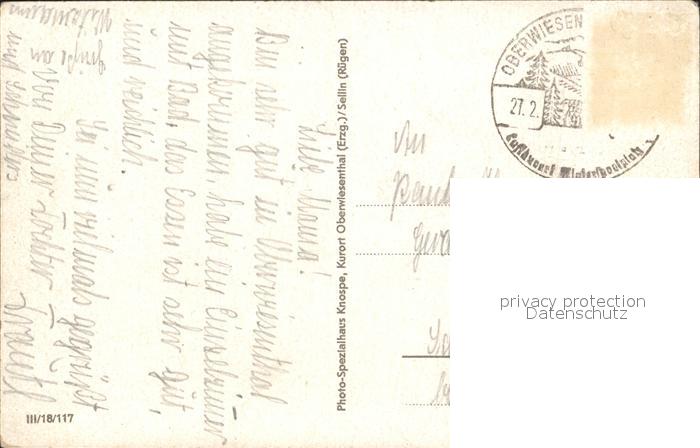 Liebe Mama!
Bin sehr gut in Oberwiesenthal
angekommen, habe ein Einzelzimmer
mit Bad, das Essen ist sehr gut,
und reichlich.
Sei nun vielmals gegrüßt
von Deiner Tochter Traudl
Grüße an
und
Photo-Spezialhaus Knospe, Kurort Oberwiesenthal (Erzg.) / Sellin (Rügen)
III/18/117
OBERWIESEN
27.2.
Luftkurort Wintersportplatz
An
privacy protection
Datenschutz